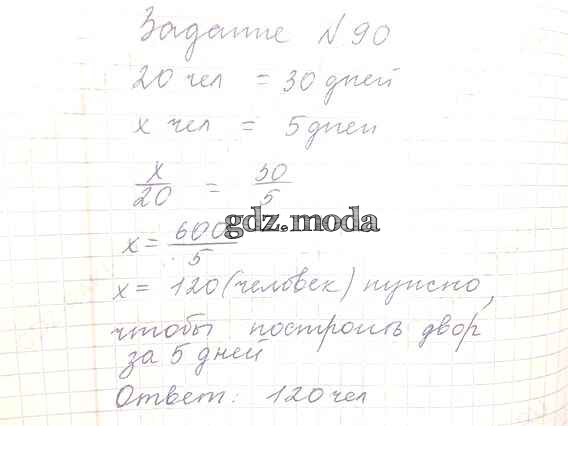 Задание №90
20 чел = 30 дней
x чел = 5 дней
x/20 = 30/5
x = 600/5
gdz.moda
x = 120 (человек) нужно,
чтобы построить двор
за 5 дней
Ответ: 120 чел